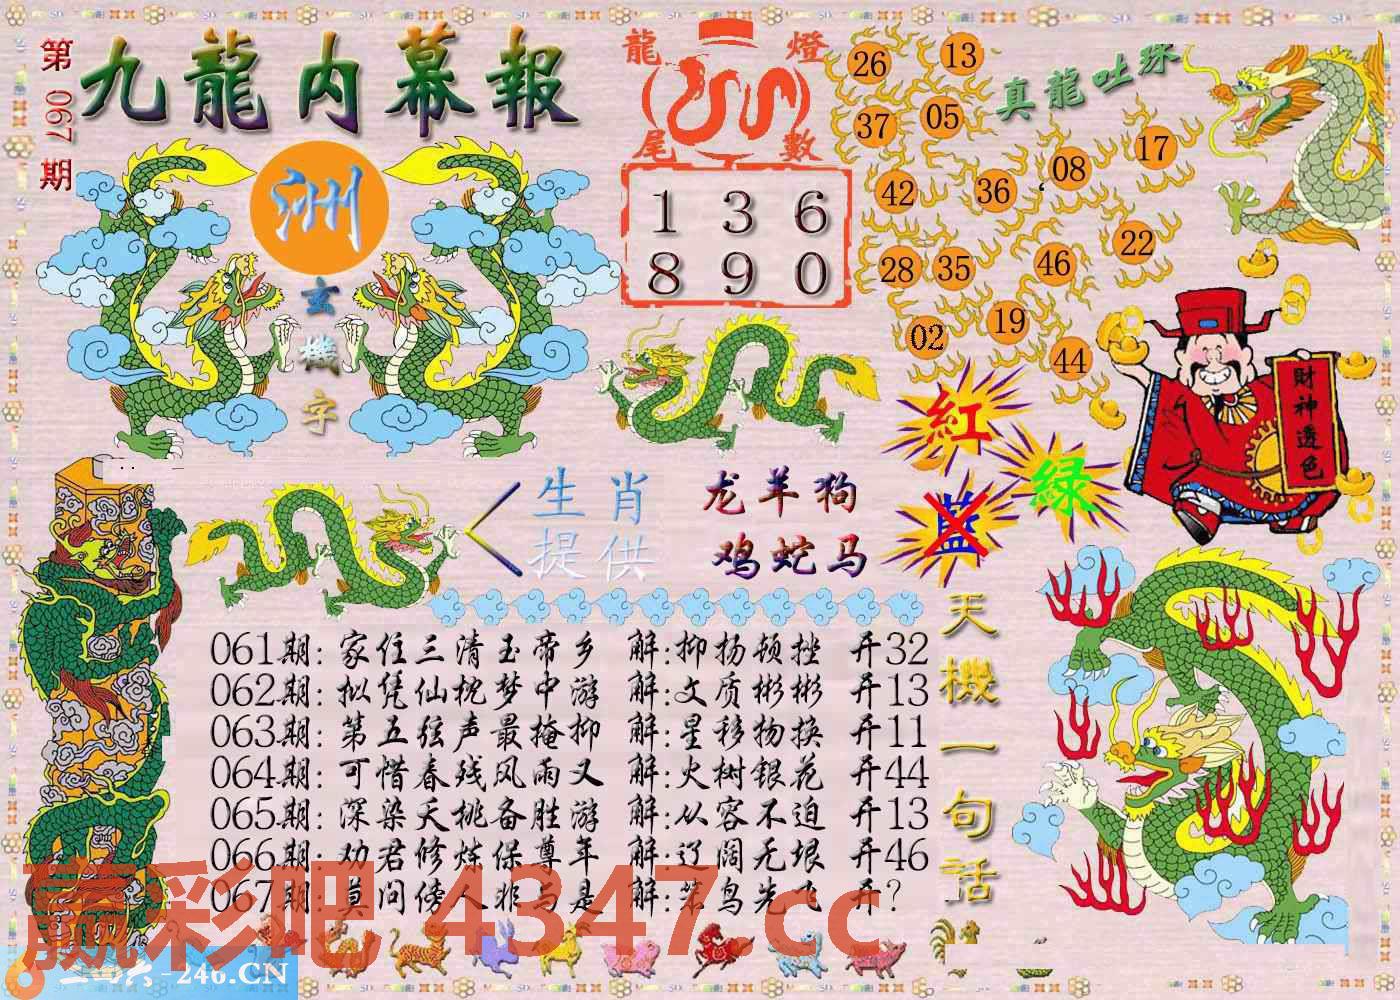 第067期
九龍内幕報
洲
玄機字
龍燈
尾數
1 3 6
8 9 0
真龍吐珠
26 13
37 05
42 36 08 17
28 35 46 22
02 19 44
財神透色
紅
绿
蓝
生肖 龙羊狗
提供 鸡蛇马
天機一句话
061期:家住三清玉帝乡 解:抑扬顿挫 开32
062期:拟凭仙枕梦中游 解:文质彬彬 开13
063期:第五弦声最掩抑 解:星移物换 开11
064期:可惜春残风雨又 解:火树银花 开44
065期:深染夭桃备胜游 解:从容不迫 开13
066期:劝君修炼保尊年 解:辽阔无垠 开46
067期:莫问傍人非与是 解:笨鸟先飞 开?
赢彩吧 4347.cc
二四六-246.CN